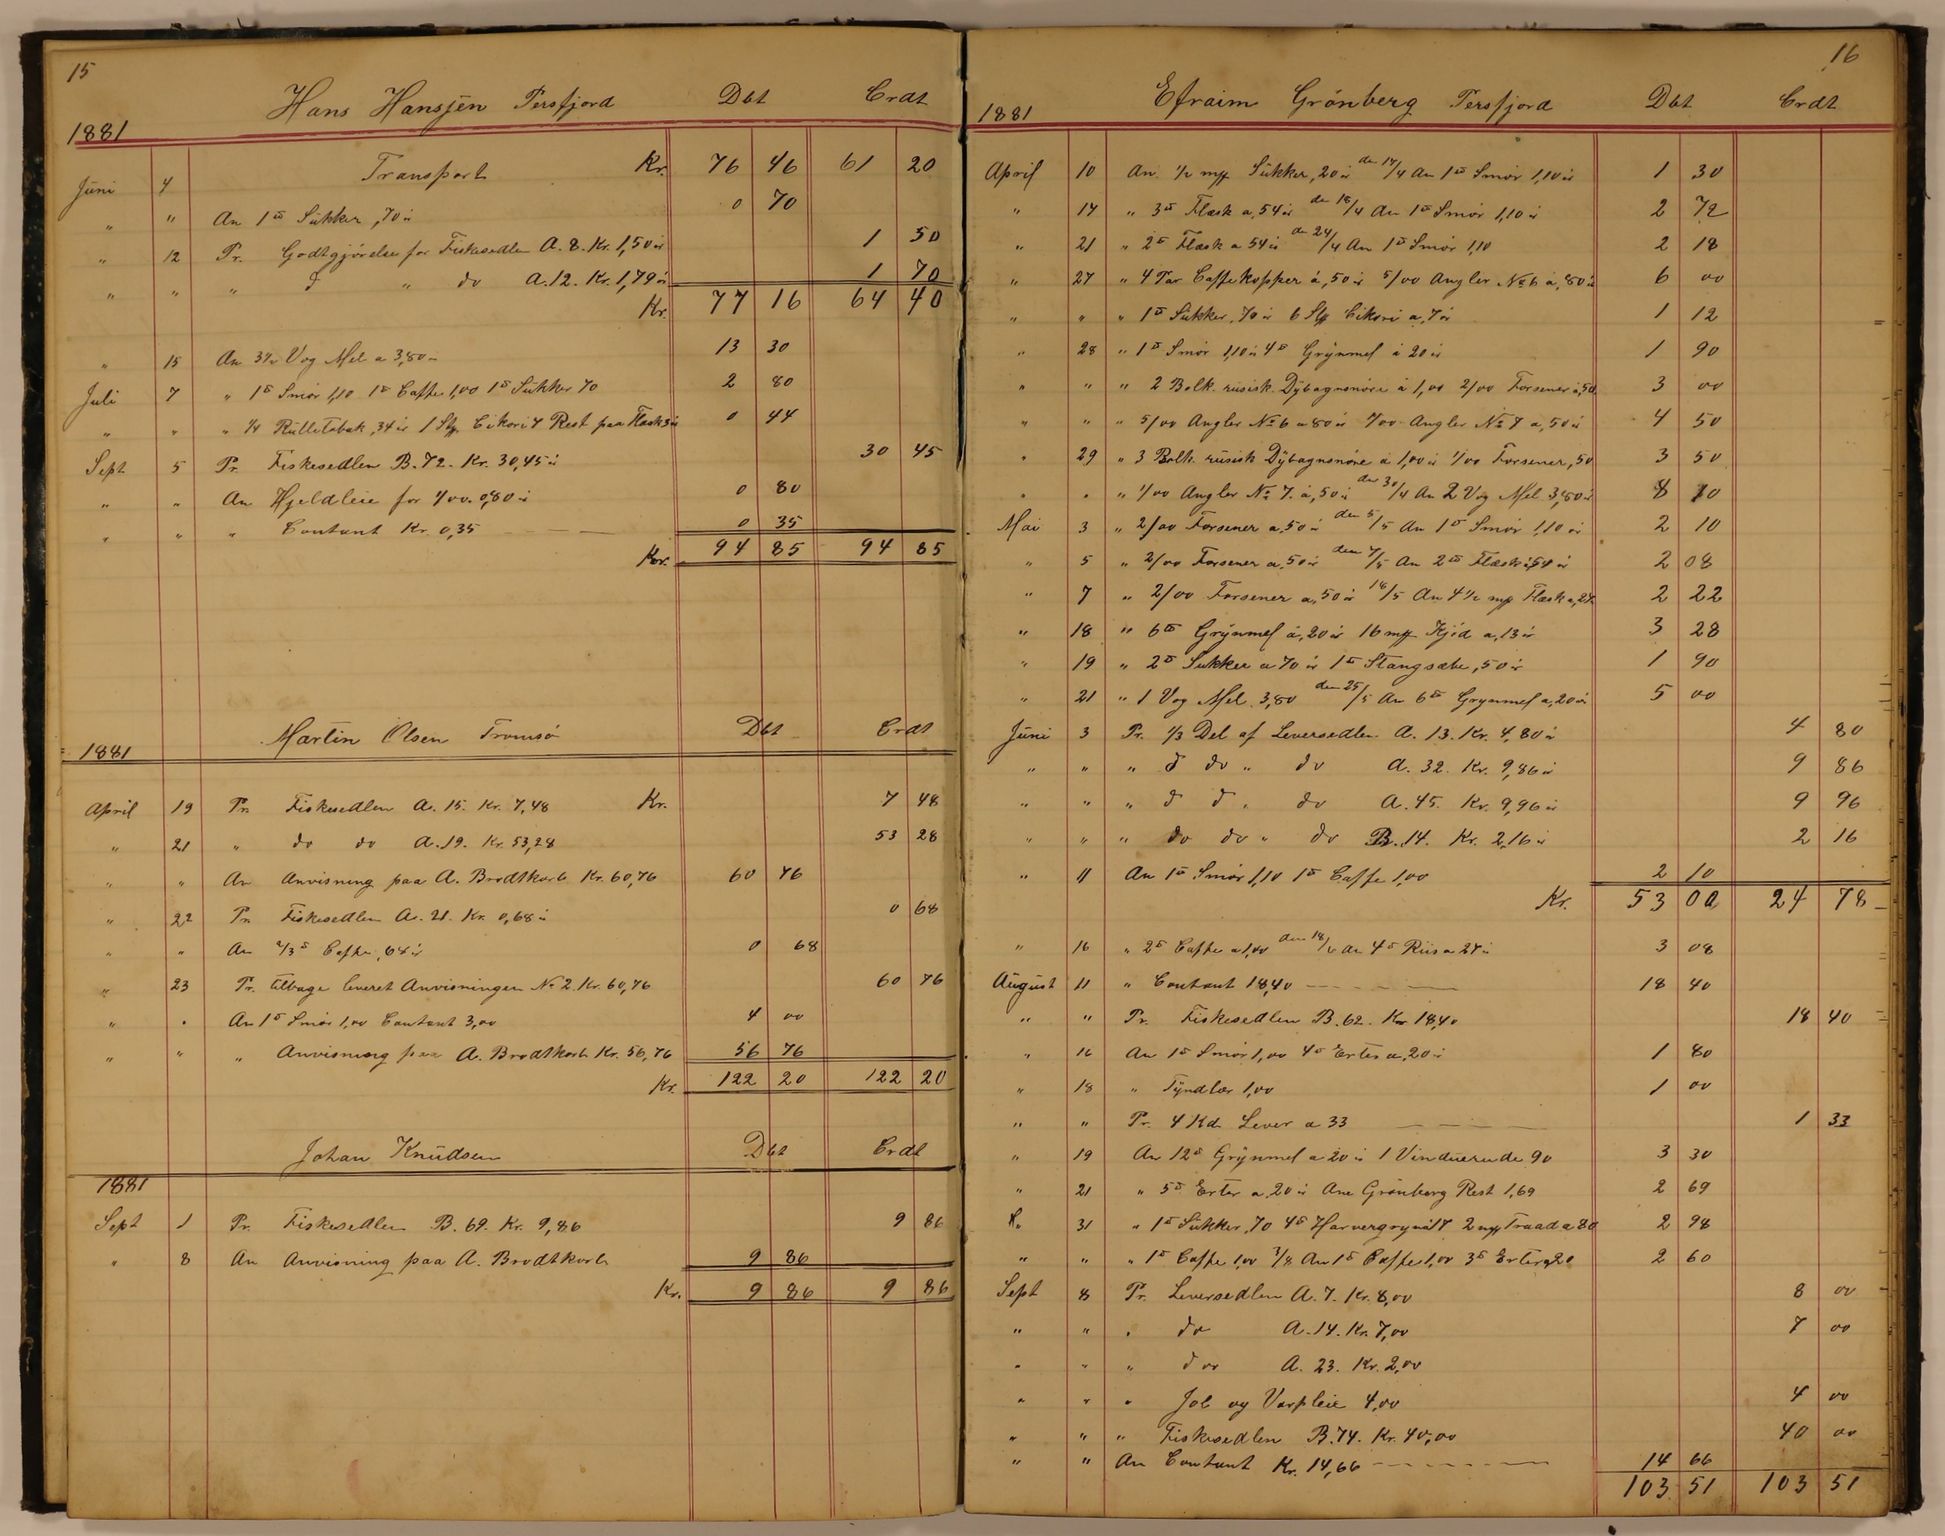 15
Hans Hansjen Persfjord Dbt Crdt
1881
Juni 4 Transport Kr. 76 46 61 20
" " An 1 ℔ Sukker ,70 ör 0 70
" 12 Pr. Godtgjörelse for Fiskesedlen A. 8. Kr. 1,50 ör 1 50
" " " d " do A. 12. Kr. 1,79 ör 1 70
Kr. 77 16 64 40
" 15 An 3½ Vog Mel a 3,80 " 13 30
Juli 7 " 1 ℔ Smör 1,10 1 ℔ Caffe 1,00 1 ℔ Sukker 70 2 80
" " " ¼ Rulletobak ,34 ör 1 Stk. Cikori 7 Rest paa Flæsk 3 ör 0 44
Sept 5 Pr. Fiskesedlen B. 72. Kr. 30,45 ör 30 45
" " An Hjeldleie for 4/00. 0,80 ör 0 80
" " " Contant Kr. 0,35 0 35
Kr. 94 85 94 85
Martin Olsen Tromsö Dbt Crdt
1881
April 19 Pr. Fiskesedlen A. 15. Kr. 7,48 Kr. 7 48
" 21 " do do A. 19. Kr. 53,28 53 28
" " An Anvisning paa A. Brodtkorb Kr. 60,76 60 76
" 22 Pr. Fiskesedlen A. 21. Kr. 0,68 ör 0 68
" " An 2/3 ℔ Caffe ,68 ör 0 68
" 23 Pr. tilbage leveret Anvisningen No 2 Kr. 60,76 60 76
" " An 1 ℔ Smör 1,00 Contant 3,00 4 00
" " " Anvisning paa A. Brodtkorb Kr. 56,76 56 76
Kr. 122 20 122 20
Johan Knudsen Dbt Crdt
1881
Sept 1 Pr. Fiskesedlen B. 69. Kr. 9,86 9 86
" 8 An Anvisning paa A. Brodtkorb 9 86
Kr. 9 86 9 86
16
1881 Efraim Grönberg Persfjord Dbt Crdt
April 10 An ½ mk Sukker, 20 ör den 14/4 An 1 ℔ Smör 1,10 ör 1 30
" 14 " 3 ℔ Flæsk a, 54 ör den 18/4 An 1 ℔ Smör 1,10 ör 2 72
" 21 " 2 ℔ Flæsk a 54 ör den 24/4 An 1 ℔ Smör 1,10 2 18
" 27 " 4 Par Caffekopper á, 50 ör 5/00 Angler No 6 a, 80 ör 6 00
" " " 1 ℔ Sukker, 70 ör 6 Stk Cikori a, 7 ör 1 12
" 28 " 1 ℔ Smör 1,10 ör 4 ℔ Grynmel á 20 ör 1 90
" " " 2 Bolk. rusisk. Dybagnsnöre á 1,00 2/00 Forsener á, 50 3 00
" " " 5/00 Angler No 6 a 80 ör 1/00 Angler No 7 a, 50 ör 4 50
" 29 " 3 Bolk. rusisk Dybagnsnöre á 1,00 ör 1/00 Forsener, 50 3 50
" " " 1/00 Angler No 7. á, 50 ör den 30/4 An 2 Vog Mel 3,80 ör 8 10
Mai 3 " 2/00 Forsener a, 50 ör den 5/5 An 1 ℔ Smör 1,10 ör 2 10
" 5 " 2/00 Forsener a, 50 ör den 7/5 An 2 ℔ Flæsk á 54 ör 2 08
" 7 " 2/00 Forsener a, 50 ör 18/5 An 4½ mk Flæsk a, 27 2 22
" 18 " 6 ℔ Grynmel á, 20 ör 16 mk Kjöd a, 13 ör 3 28
" 19 " 2 ℔ Sukker a 70 ör 1 ℔ Stangsæbe, 50 ör 1 90
" 21 " 1 Vog Mel 3,80 den 25/5 An 6 ℔ Grynmel a, 20 ör 5 00
Juni 3 Pr. 1/3 Del af Leversedlen A. 13. Kr. 4,80 ör 4 80
" " " d do " do A. 32. Kr. 9,86 ör 9 86
" " " d d " do A. 45. Kr. 9,96 ör 9 96
" " " do do " do B. 14. Kr. 2,16 ör 2 16
" 11 An 1 ℔ Smör 1,10 1 ℔ Caffe 1,00 2 10
Kr. 53 00 24 78
" 16 " 2 ℔ Caffe a 1,00 den 18/6 An 4 ℔ Riis a 27 ör 3 08
August 11 " Contant 18,40 18 40
" " Pr. Fiskesedlen B. 62. Kr 18,40 18 40
" 16 An 1 ℔ Smör 1,00 4 ℔ Erter a, 20 ör 1 80
" 18 " Tyndlær 1,00 1 00
" " Pr. 4 Kd. Lever a 33 1 33
" 19 An 12 ℔ Grynmel a 20 ör 1 Vinduerude 90 3 30
" 21 " 5 ℔ Erter a, 20 ör Ane Grönberg Rest 1,69 2 69
" 31 " 1 ℔ Sukker, 70 4 ℔ Havergryn á 17 2 mk Traad a 80 2 98
" " " 1 ℔ Caffe 1,00 3/8 An 1 ℔ Caffe 1,00 3 ℔ Erter a 20 2 60
Sept 8 Pr. Leversedlen A. 7. Kr. 8,00 8 00
" " " do A. 14. Kr. 7,00 7 00
" " " do A. 23. Kr. 2,00
" " " Jol og Varpleie 4,00 4 00
" " " Fiskesedlen B. 74. Kr. 40,00 40 00
" " An Contant Kr. 14,66 14 66
103 51 103 51